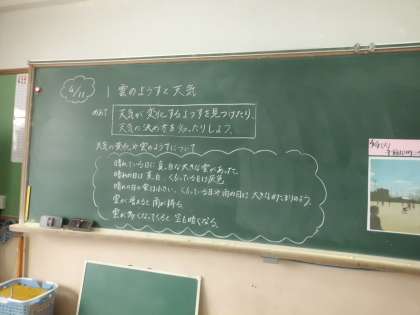 4/11
1 雲のようすと天気
めあて 天気が変化するようすを見つけたり、
天気の決め方を知ったりしよう。
天気の変化や雲のようすについて
晴れている日に真っ白な大きな雲があった。
晴れの日は真っ白、くもっている日は灰色
晴れの日の雲は小さい、くもっている日や雨の日は大きなかたまりのよう。
雲が増えると雨が降る
雲が黒くなってくると空も暗くなる。